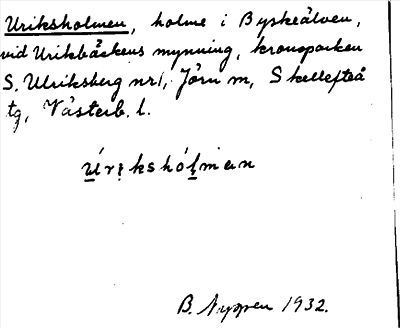 Uriksholmen, holme i Byskeälven,
vid Urikbäckens mynning, kronoparken
S. Ulriksberg nr 1, Jörn m, Skellefteå
tg, Västerb. l.
úrikshólmen
B. Nyggen 1932.